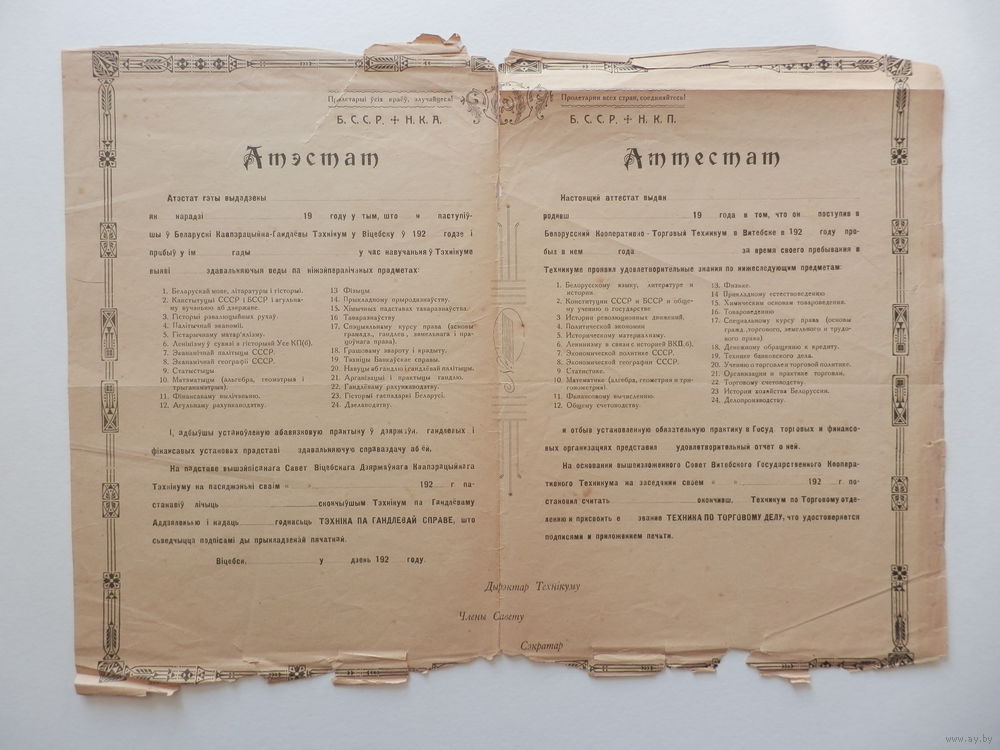 Пролетарыі ўсіх краёў, злучайцеся!
Б. С. С. Р. + Н. К. А.
Атэстат
Атэстат гэты выдадзены
як народзі 19 году у тым, што н паступіў-
шы ў Беларускі Каапэрацыйна-Гандлёвы Тэхнікум у Віцебску ў 192 годзе і
прыбыў у ім гады у час навучаньня ў Тэхнікуме
выяві здавальняючыя веды па ніжэйпералічаных прадметах:
1. Беларускай мове, літаратуры і гісторыі.
2. Канстытуцыі СССР і БССР і агульна-
му вучэньню аб дзяржаве.
3. Гісторыі рэвалюцыйных рухаў.
4. Палітычнай эканоміі.
5. Гістарычнаму матар'ялізму.
6. Ленінізму ў сувязі з гісторыяй Усе КП(б).
7. Эканамічнай палітыцы СССР.
8. Эканамічнай географіі СССР.
9. Статыстыцы
10. Матэматыцы (альгебра, геомэтрыя і
трыганамэтрыя).
11. Фінансаваму вылічэньню.
12. Агульнаму рахункаводзтву.
13 Фізыцы.
14. Прыкладному природазнаўству.
15. Хімічных падставах таваразнаўства.
16 Таваразнаўству
17. Спэцыяльнаму курсу права (асновы
грамадз., гандлев., зямельнага і пра-
цоўнага права).
18. Грашоваму звароту і крэдыту.
19 Тэхніцы Банкаўскае справы.
20. Навуцы аб гандлю і гандлёвай палітыцы.
21. Арганізацыі і практыцы гандлю.
22. Гандлёваму рахункаводзтву.
23. Гісторыі гаспадаркі Беларусі.
24. Дзелаводзтву.
І, адбыўшы устаноўленую абавязковую практыку ў дзяржаўн. гандлёвых і
фінансавых установах прадставі здавальняючую справаздачу аб ёй.
На падставе вышэйпісанага Савет Віцебскага Дзяржаўнага Каапэрацыйнага
Тэхнікуму на пасяджэньні сваім « » 192 г па-
станавіў лічыць скончыўшым Тэхнікум па Гандлёваму
Аддзяленьню і надаць годнасьць ТЭХНІКА ПА ГАНДЛЕВАЙ СПРАВЕ, што
сьведчыцца подпісамі ды прыкладзенай пячаткай.
Віцебск, у дзень 192 году.
Пролетарии всех стран, соединяйтесь!
Б. С. С. Р. + Н. К. П.
Аттестат
Настоящий аттестат выдан
родивш 19 года в том, что он поступив в
Белорусский Кооперативно-Торговый Техникум в Витебске в 192 году про-
был в нем года за время своего пребывания в
Техникуме проявил удовлетворительные знания по нижеследующим предметам:
1. Белорусскому языку, литературе и
истории.
2. Конституции СССР и БССР и обще-
му учению о государстве
3. Истории революционных движений.
4. Политической экономии
5. Историческому материализму.
6. Ленинизму в связи с историей ВКП(б).
7. Экономической политике СССР.
8. Экономической географии СССР.
9. Статистике.
10. Математике (алгебра, геометрия и три-
гонометрия).
11. Финансовому вычислению.
12. Общему счетоводству.
13. Физике.
14 Прикладному естествоведению
15. Химическим основам товароведения.
16. Товароведению
17. Специальному курсу права (основы
гражд., торгового, земельного и трудо-
вого права)
18. Денежному обращению и кредиту.
19. Технике банковского дела.
20. Учению о торговле и торговой политике.
21. Организации и практике торговли.
22. Торговому счетоводству.
23 Истории хозяйства Белоруссии.
24. Делопроизводству.
и отбыв установленную обязательную практику в Госуд. торговых и финансо-
вых организациях представил удовлетворительный отчет о ней.
На основании вышеизложенного Совет Витебского Государственного Коопера-
тивного Техникума на заседании своем « » 192 г. по-
становил считать окончивш. Техникум по Торговому отде-
лению и присвоить е звание ТЕХНИКА ПО ТОРГОВОМУ ДЕЛУ, что удостоверяется
подписями и приложением печати.
№
Дырэктар Технікуму
Члены Савету
Сэкратар
www.ay.by